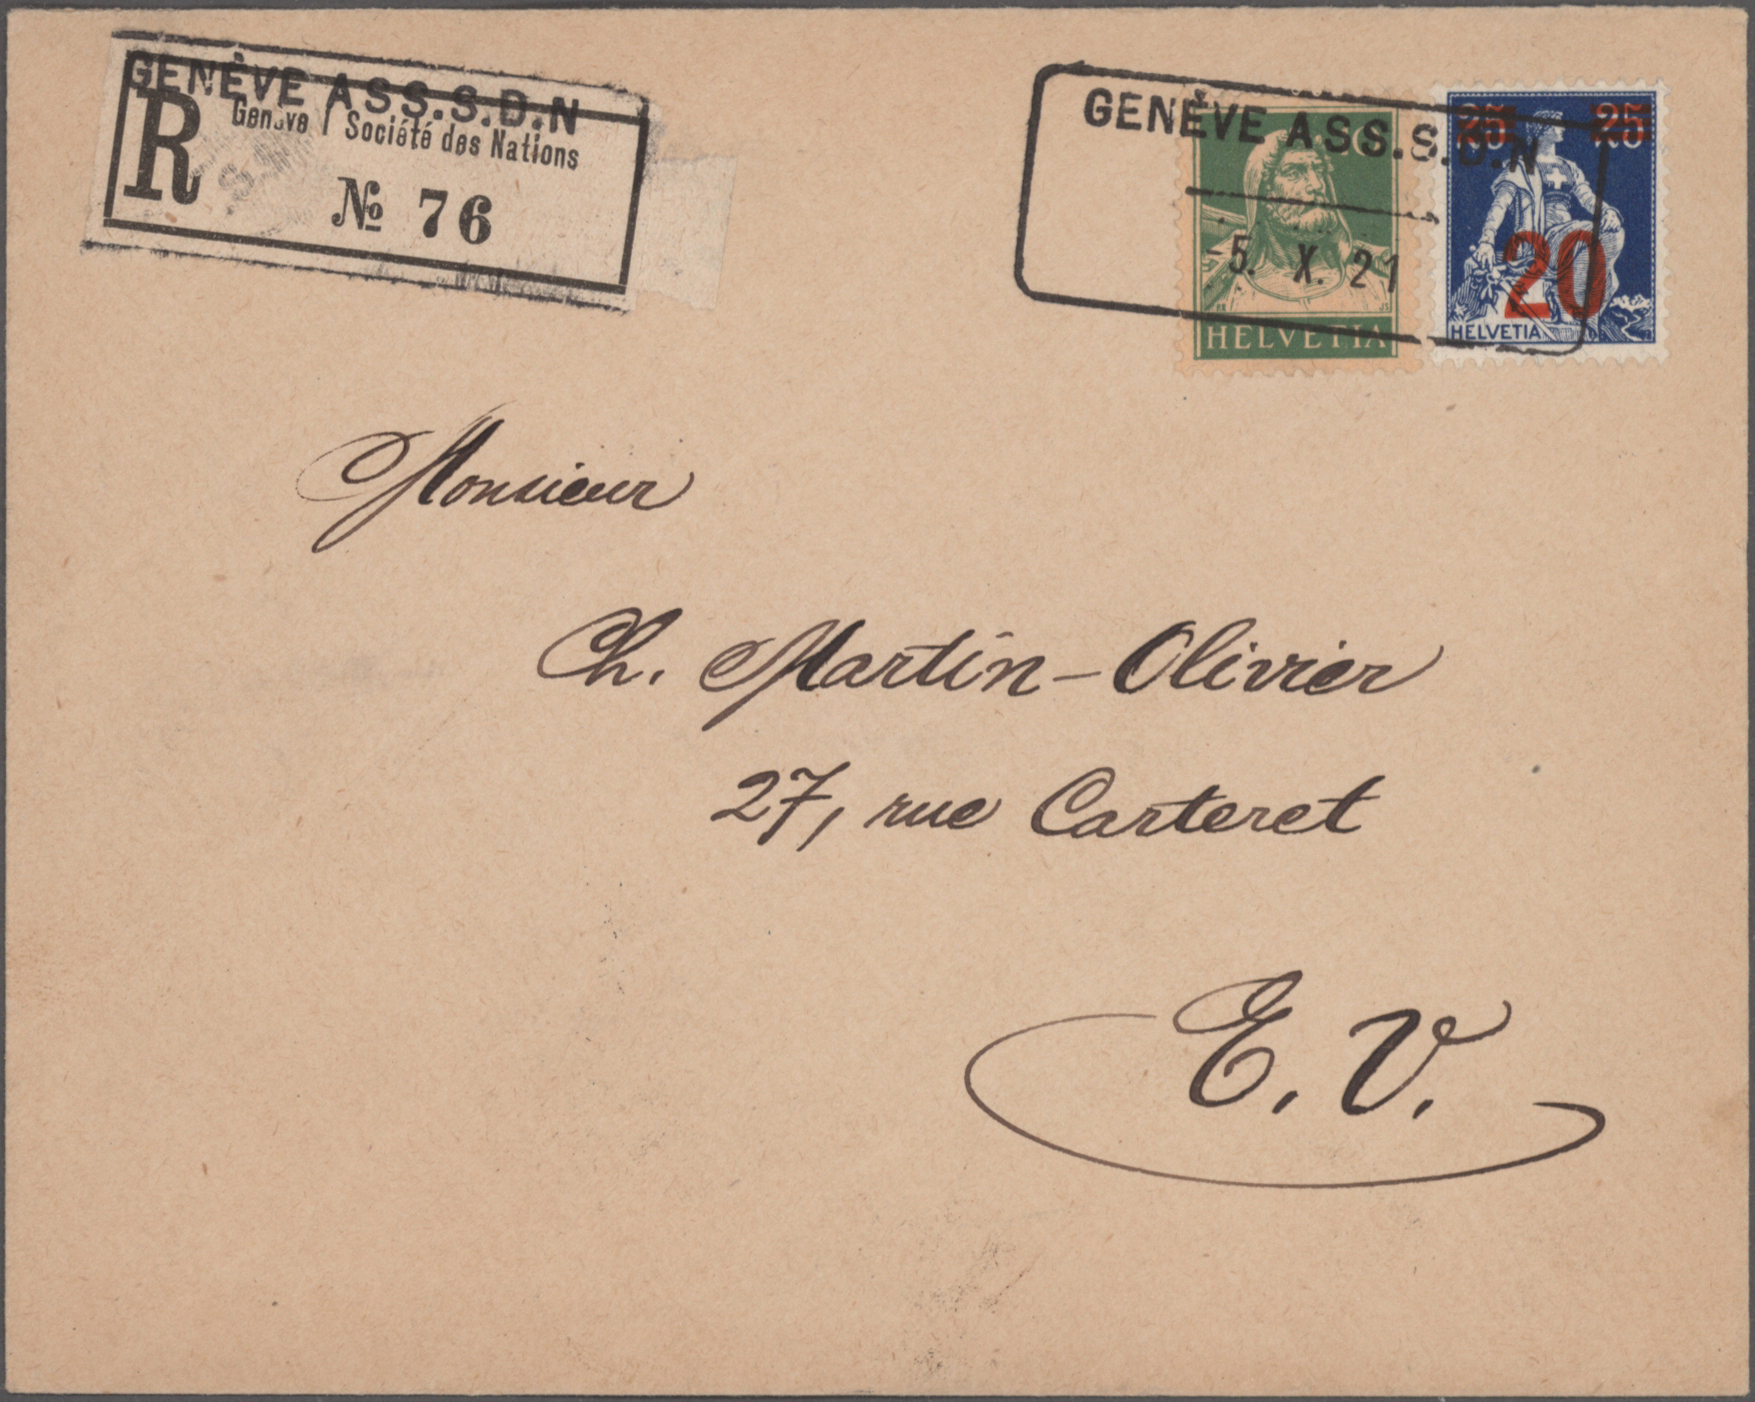 GENÈVE ASS.S.D.N
R
Genève Société des Nations
№ 76
GENÈVE ASS.S.D.N
-5. X. 21
HELVETIA
25 25
20
HELVETIA
Monsieur
Ch. Martin-Olivier
27, rue Carteret
E. V.